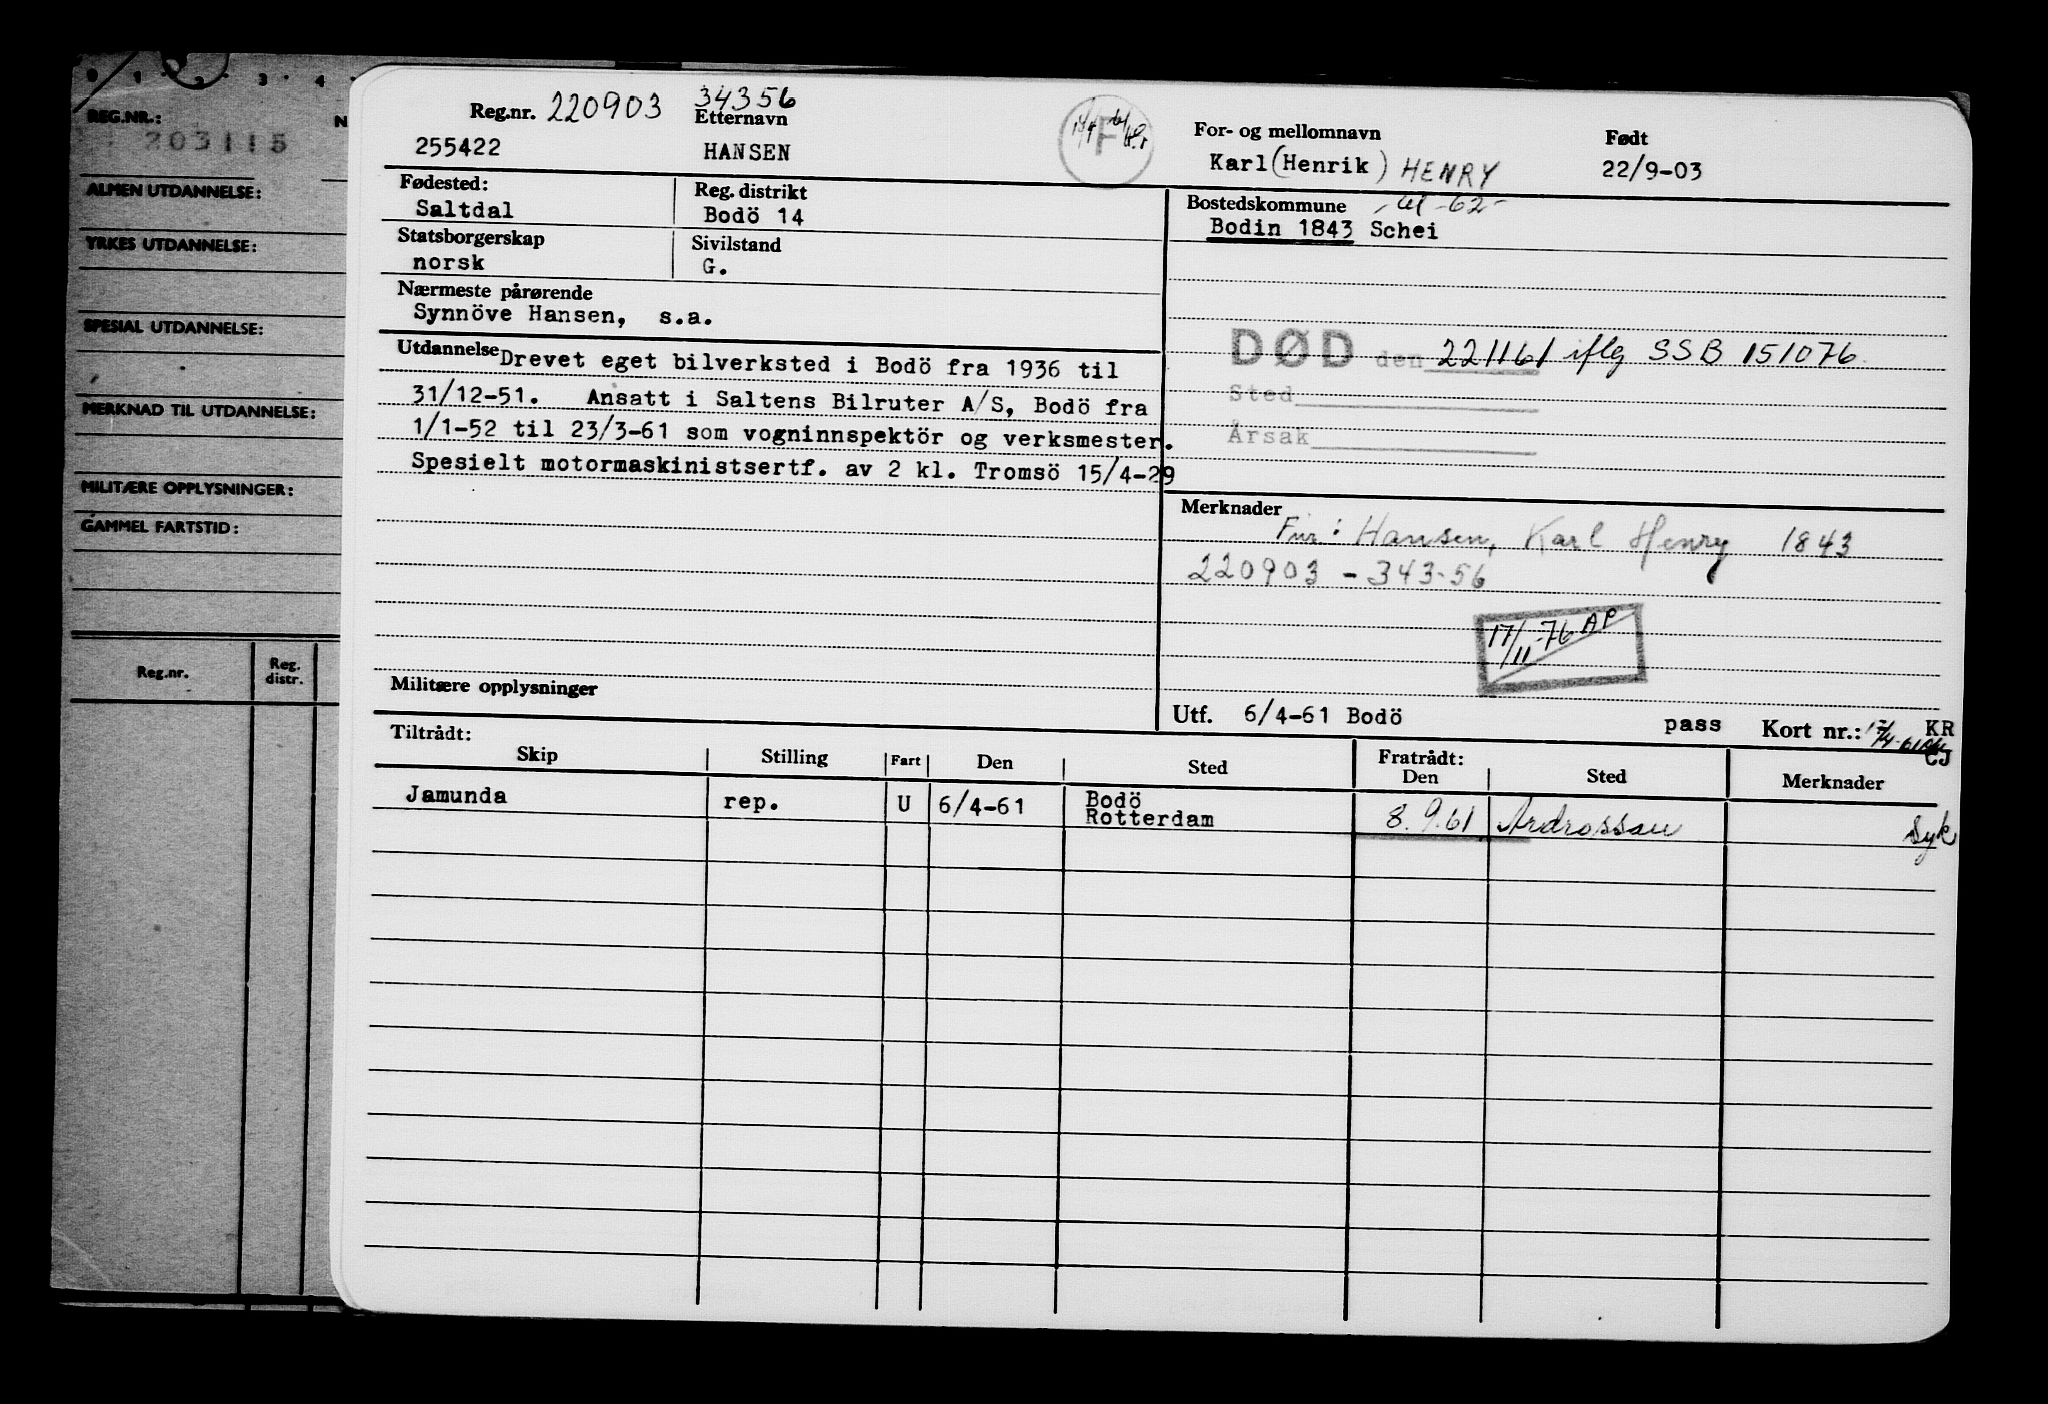 0 1 2 3 4
REG.NR.:
N
203115
ALMEN UTDANNELSE:
YRKES UTDANNELSE:
SPESIAL UTDANNELSE:
MERKNAD TIL UTDANNELSE:
MILITÆRE OPPLYSNINGER:
GAMMEL FARTSTID:
Reg.nr. Reg. distr.
Reg.nr. 220903 34356
Etternavn
For- og mellomnavn
Født
255422 HANSEN F Karl (Henrik) HENRY 22/9-03
Fødested:
Saltdal
Reg. distrikt
Bodö 14
Statsborgerskap
norsk
Sivilstand
G.
Nærmeste pårørende
Synnöve Hansen, s.a.
Utdannelse Drevet eget bilverksted i Bodö fra 1936 til
31/12-51. Ansatt i Saltens Bilruter A/S, Bodö fra
1/1-52 til 23/3-61 som vogninnspektör og verksmester.
Spesielt motormaskinistsertf. av 2 kl. Tromsö 15/4-29
Militære opplysninger
Bostedskommune -62-
Bodin 1843 Schei
DØD den 221161 iflg SSB 151076
Sted
Årsak
Merknader
Fnr: Hansen, Karl Henry 1843
220903 - 343-56
17/11-76 AP
Utf. 6/4-61 Bodö pass Kort nr.: KR
Tiltrådt:
Skip Stilling Fart Den Sted
Fratrådt:
Den Sted Merknader
Jamunda rep. U 6/4-61 Bodö
Rotterdam 8.9.61 Ardrossan Syk